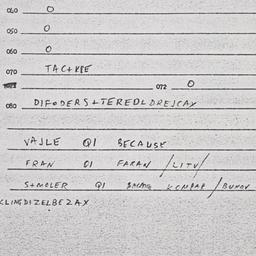 040 0
050 0
060 0
070 TAC+KPE
072 0
080 DIFODERS+TEREDLDREJCAY
VAJLE QI BECAUSE
FRAN OI FARAN /LITV/
S+MOLER QI KOMPAP /BUNOV
CLINGDIZELBEZAX